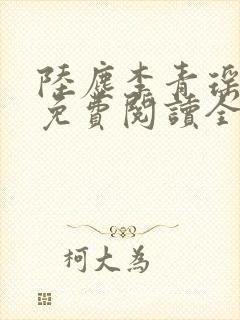 陸塵李青瑶
免費閱讀全
柯大為